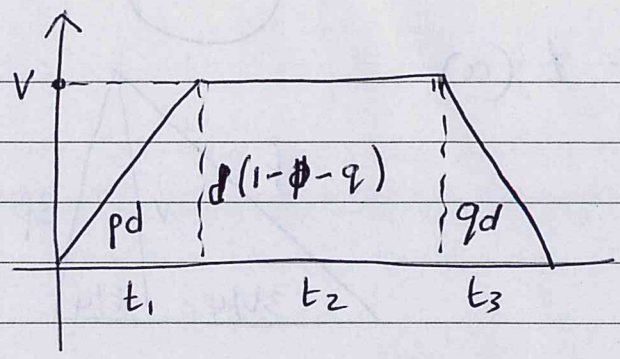 V
pd
d(1-p-q)
qd
t₁
t₂
t₃